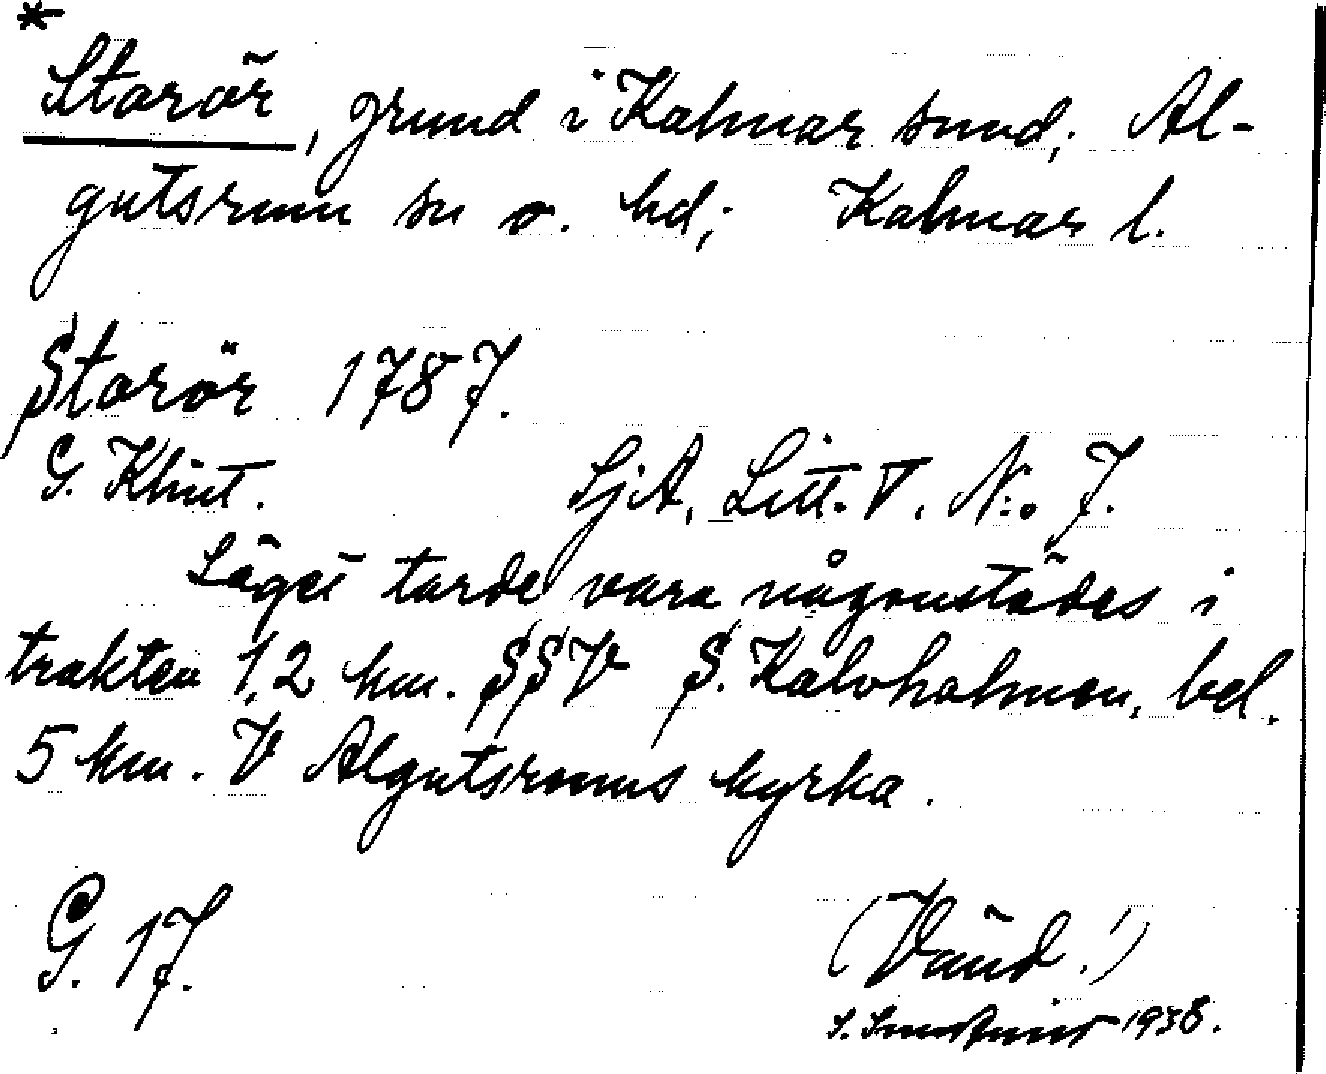 *
Storör, grund i Kalmar sund; Al-
gutsrum sn o. hd; Kalmar l.
Storör 1787.
G. Klint. SjA, Litt. V. N:o 7.
Läget torde vara någonstädes i
trakten 1,2 km. SSV S. Kalvholmen, bel.
5 km. V Algutsrums kyrka.
G. 17. (Vänd!)
1938.